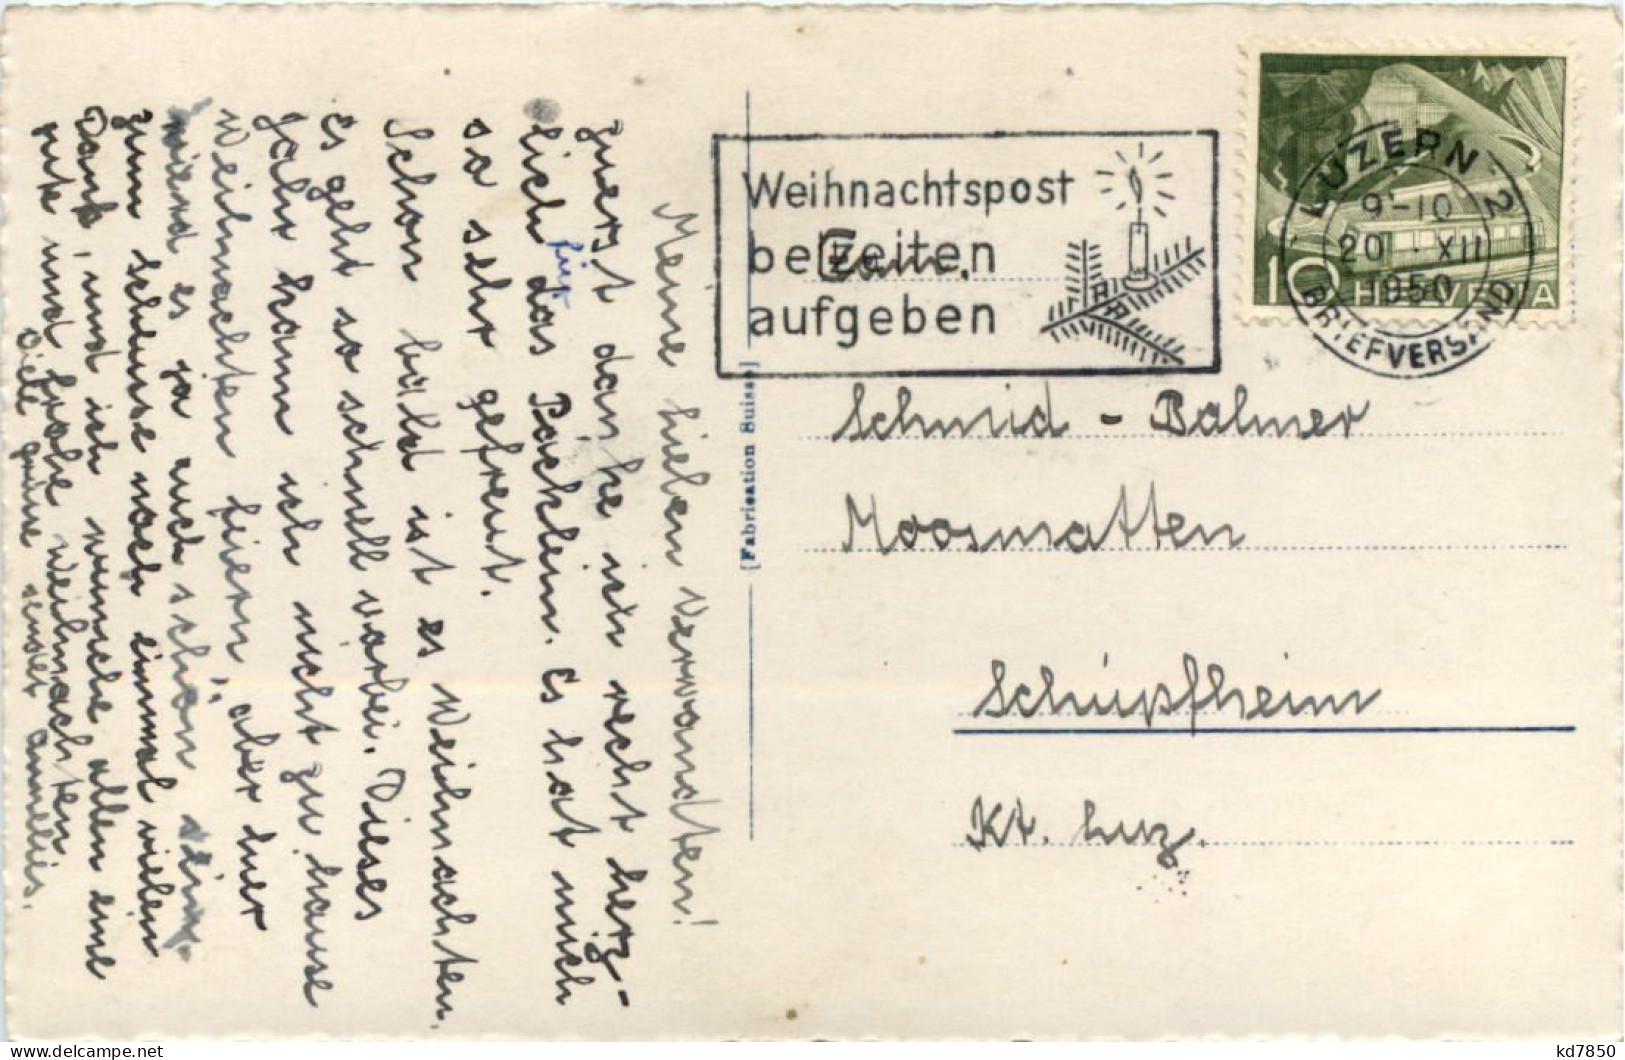 Meine lieben Verwandten!
Zuerst danke ich recht herz-
lich für das Päcklein. Es hat mich
so sehr gefreut.
Schon bald ist es Weihnachten.
Es geht so schnell vorbei. Dieses
Jahr kann ich nicht zu hause
Weihnachten fiiern, aber hier
wird es ja auch schön sein.
zum schlusse noch einmal vielen
Dank, und ich wünsche allen eine
gute und frohe Weihnachten.
Viele grüsse sendet annelies.
[Fabrication Suisse]
Weihnachtspost
beizeiten
aufgeben
Fam.
LUZERN 2
9-10
20. XII
1950
BRIEFVERSAND
10 HELVETIA
Schmid - Balmer
Moosmatten
Schüpfheim
Kt. Luz.
kd7850